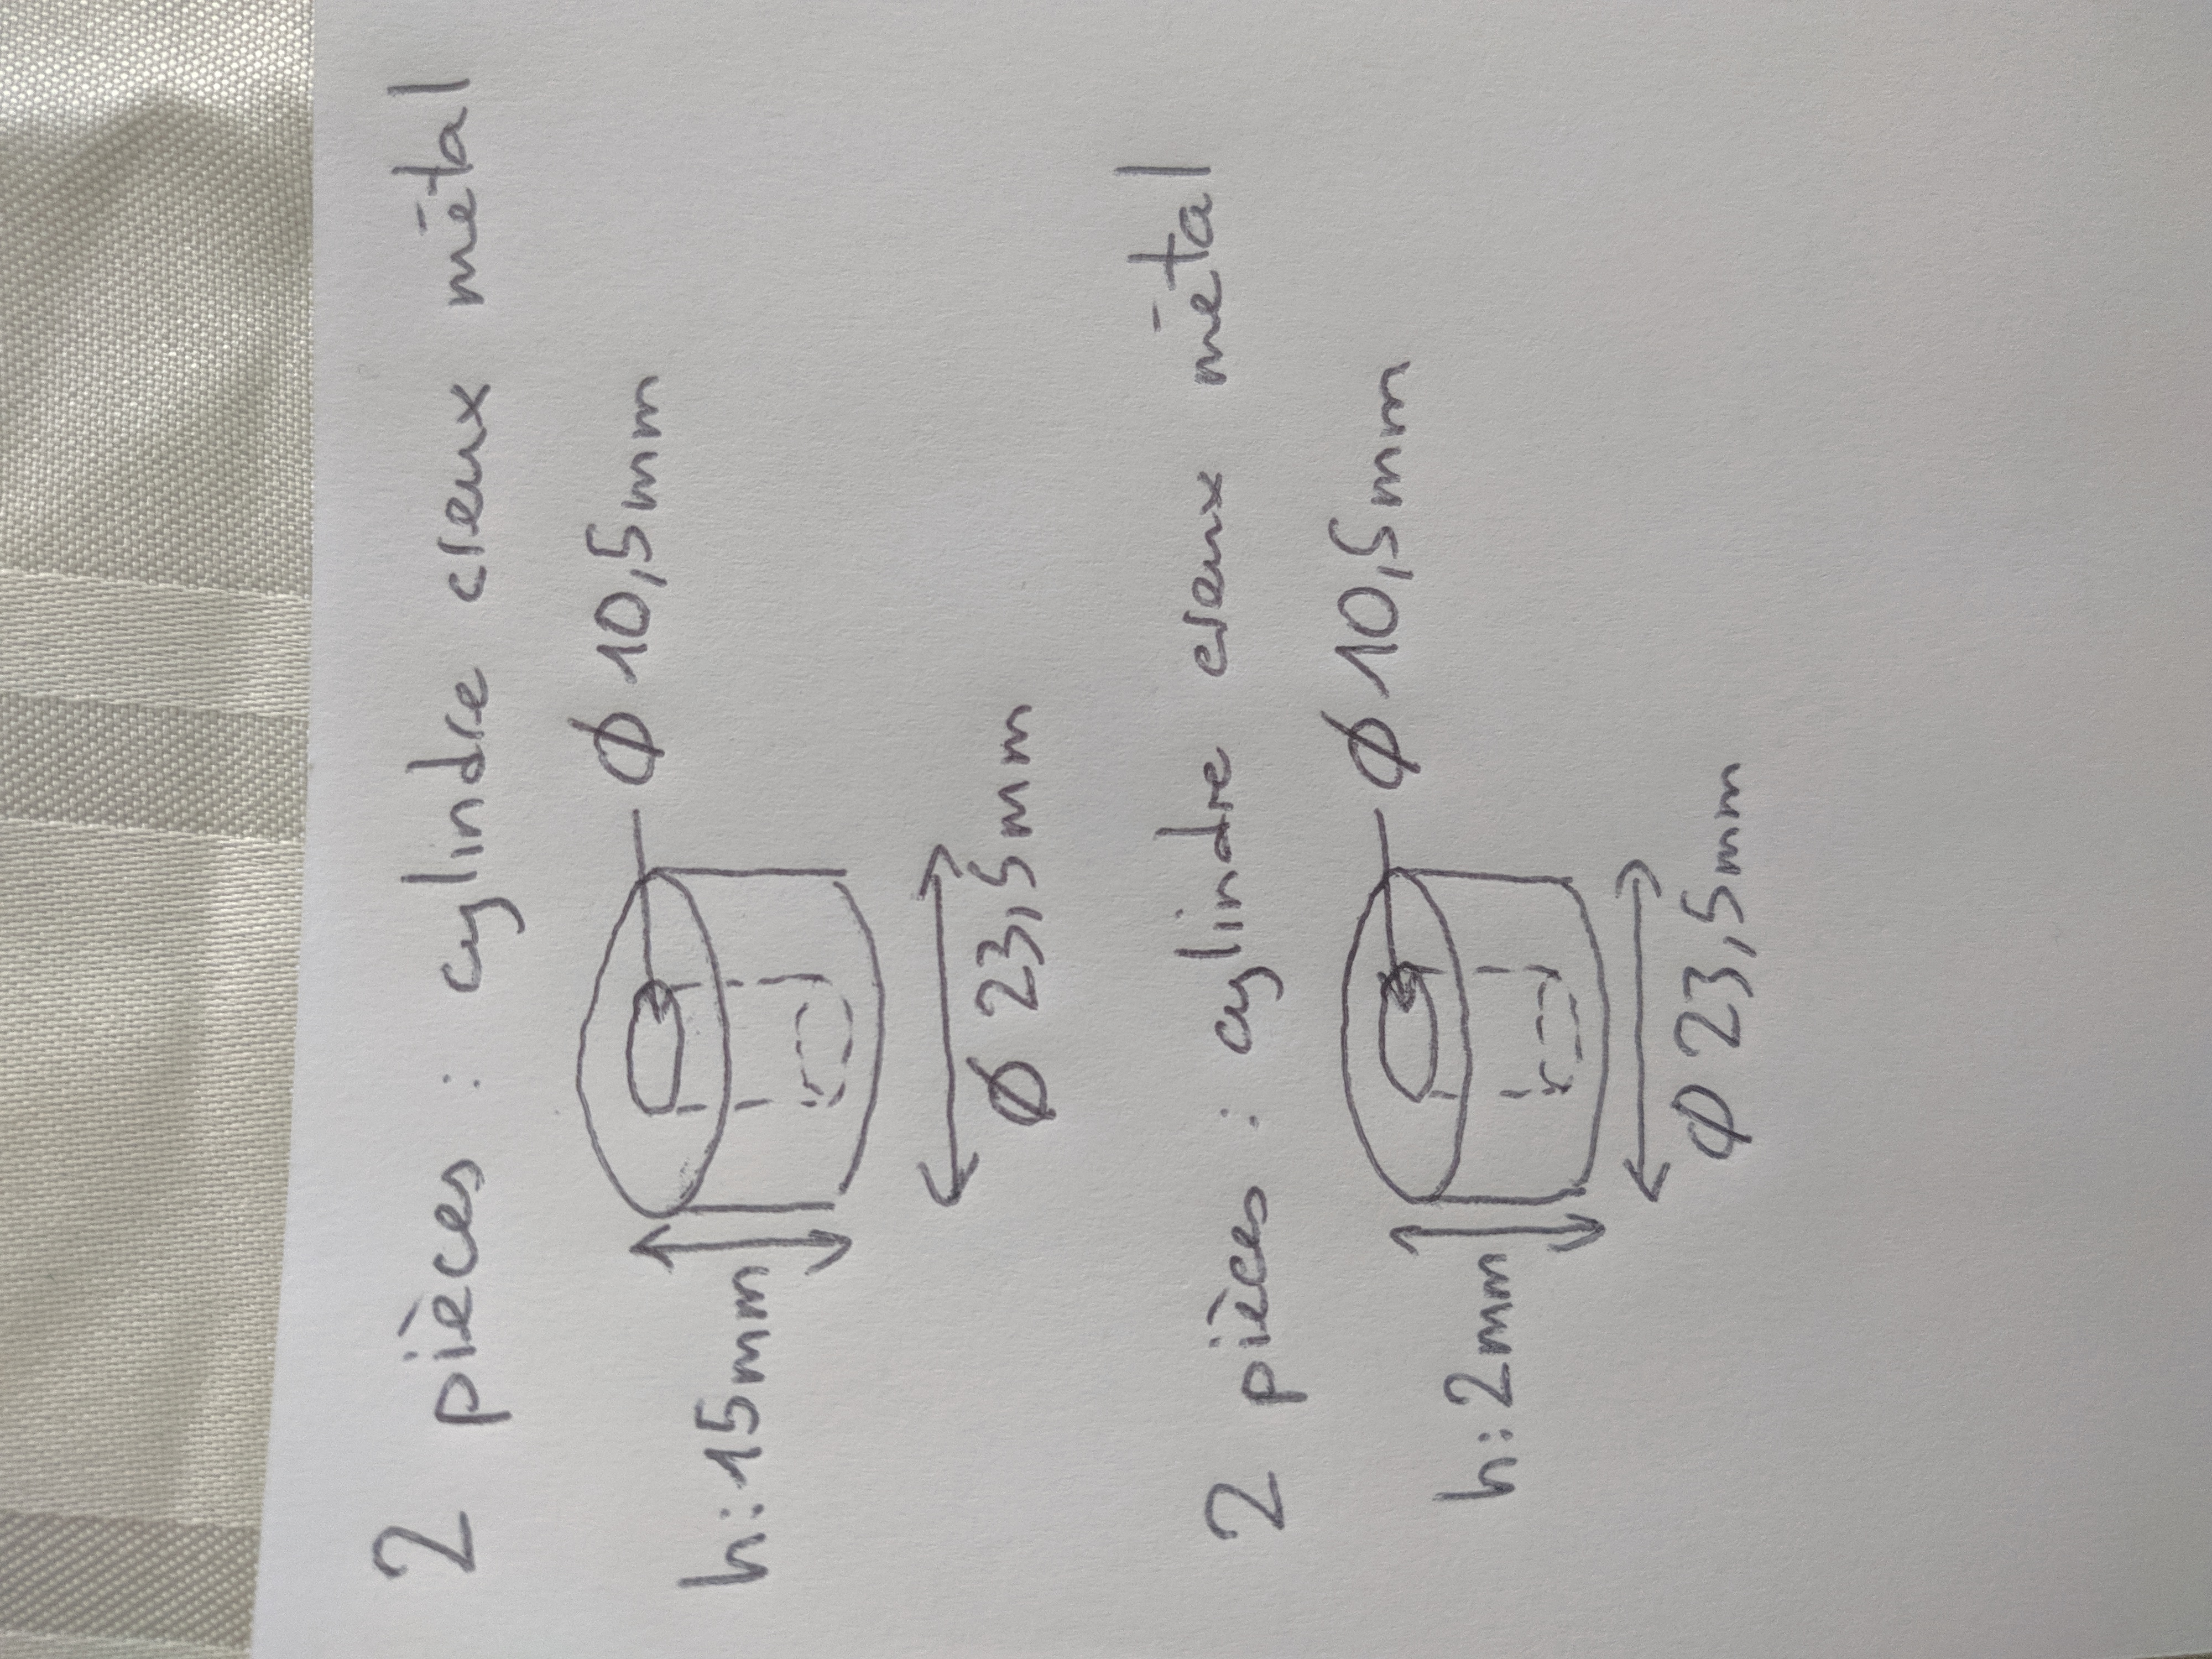 2 pièces : cylindre creux métal
Ø 10,5mm
h:15mm
Ø 23,5mm
2 pièces : cylindre creux métal
Ø 10,5mm
h:2mm
Ø 23,5mm